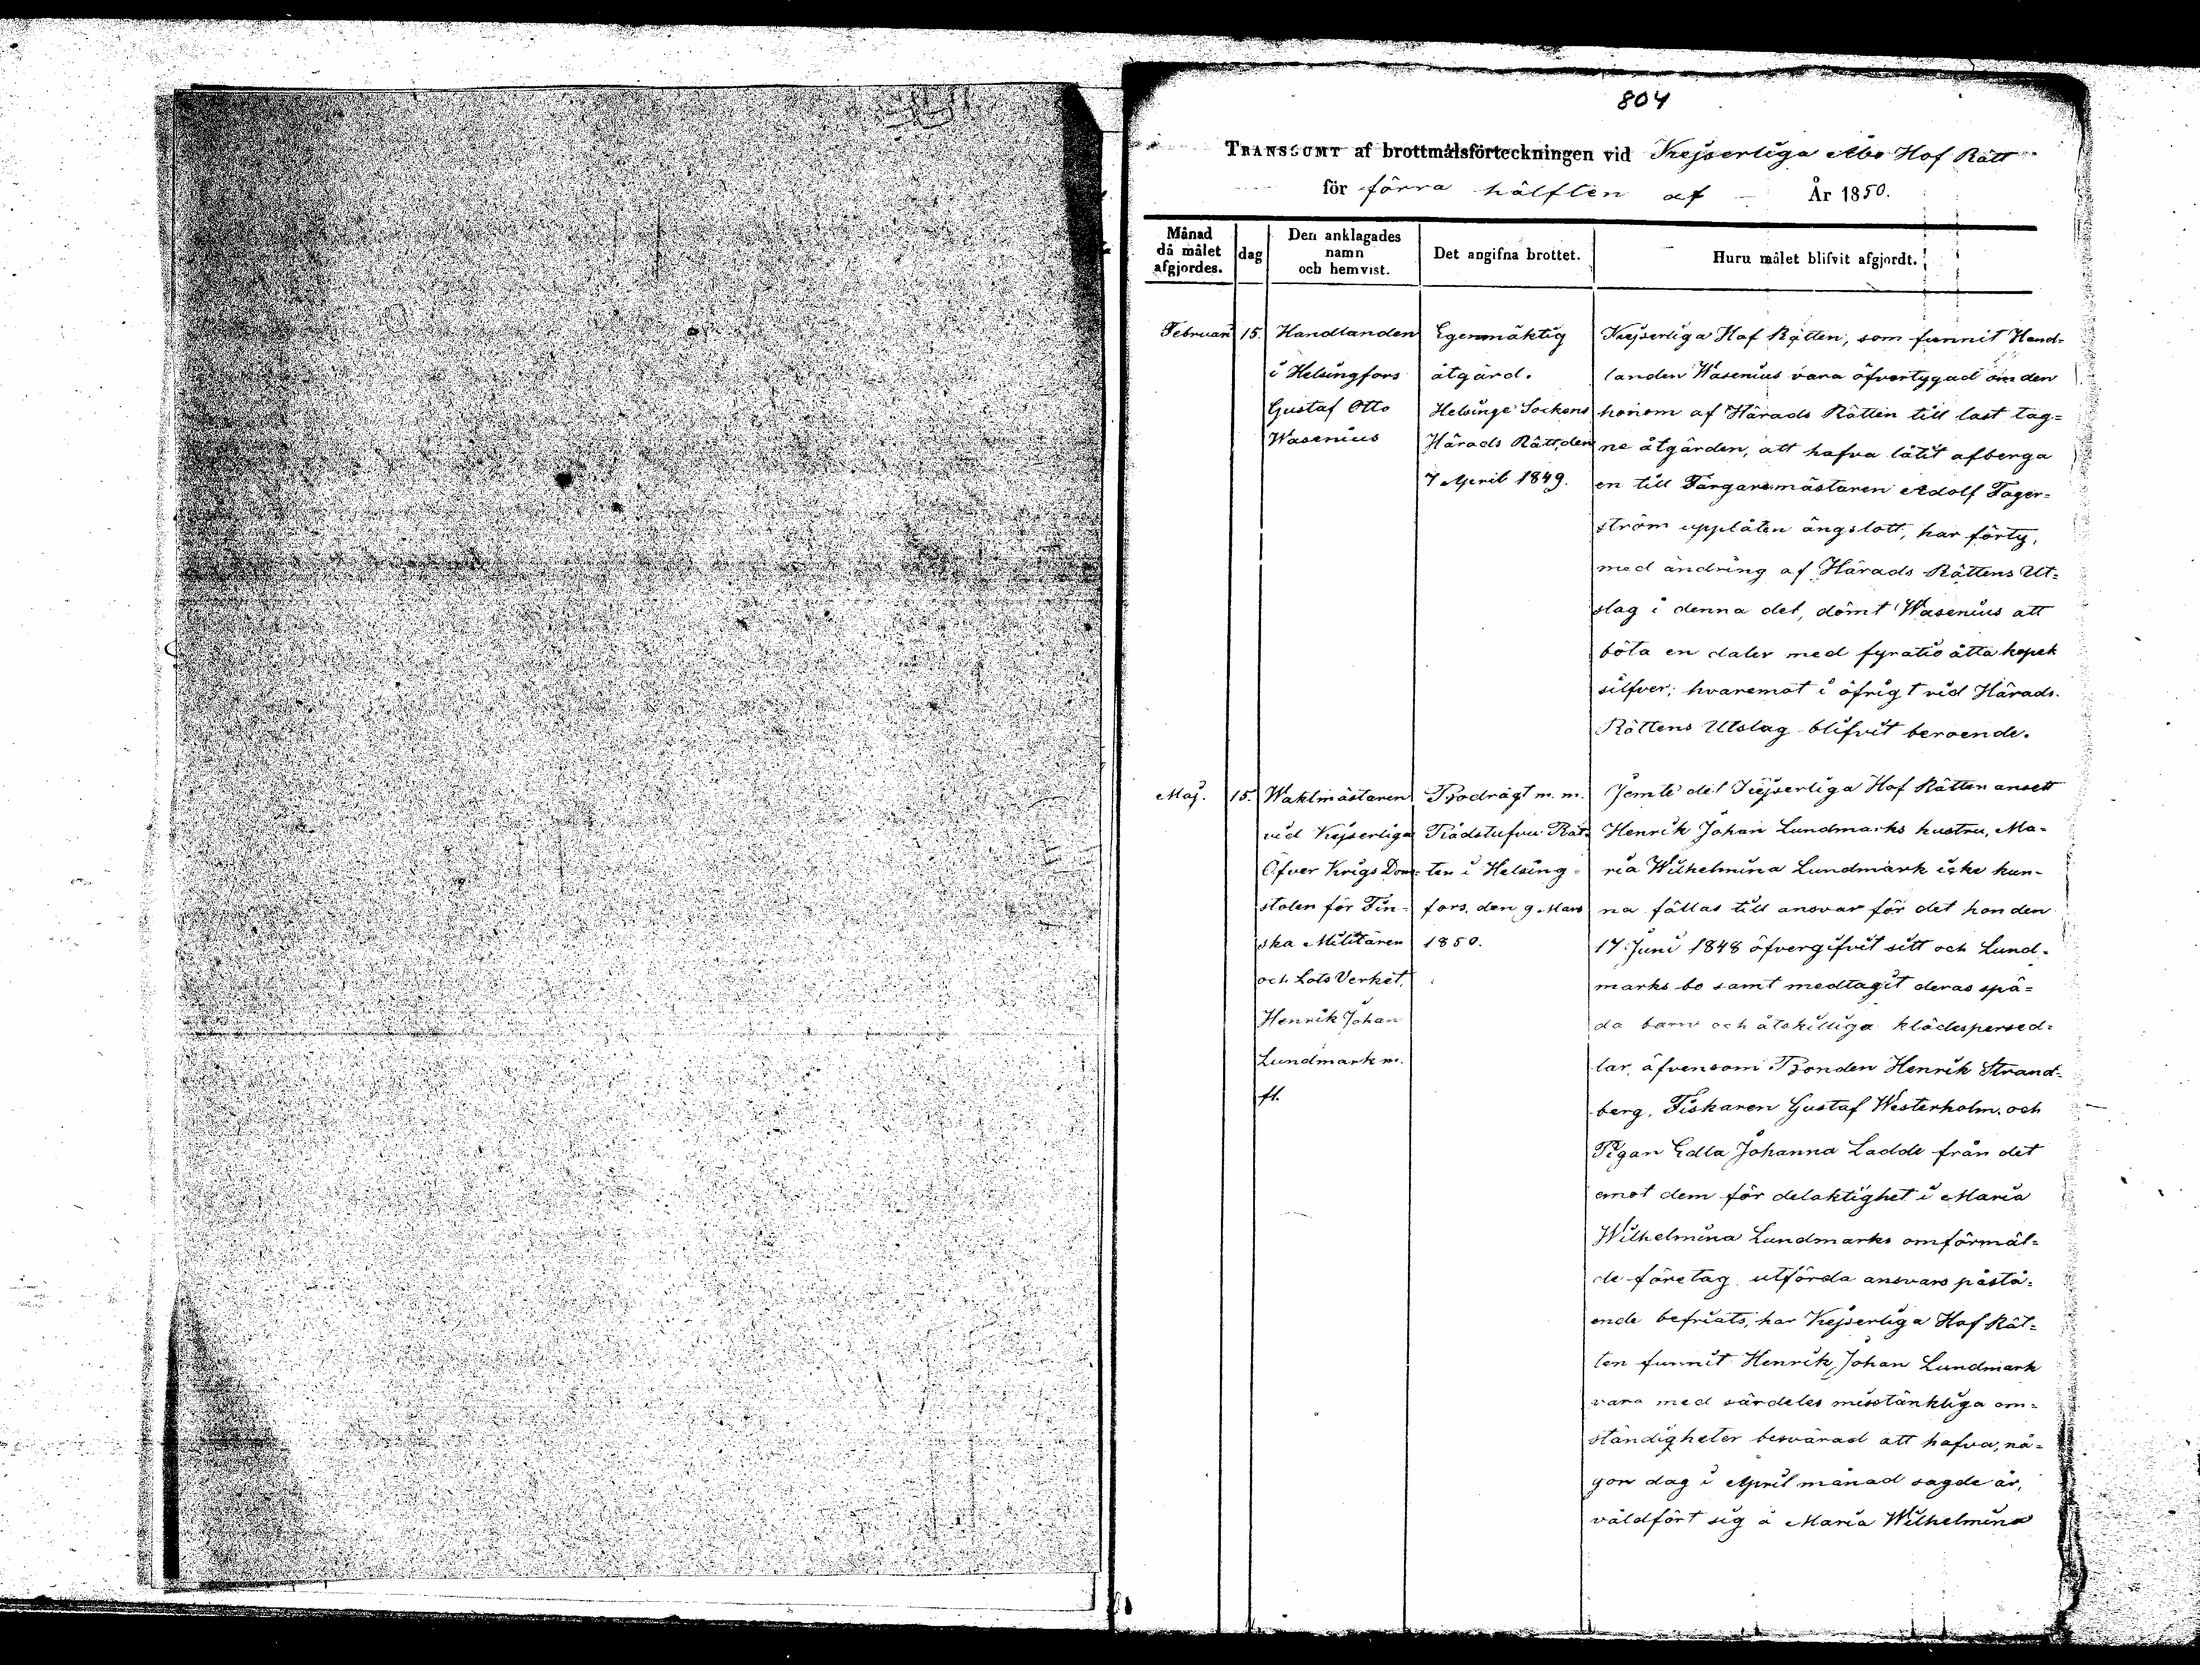 804
TRANSSUMT af brottmålsförteckningen vid Kejserliga Åbo Hof Rätt
för förra hälften af År 1850.
Månad
då målet
afgjordes.
dag
Den anklagades
namn
och hemvist.
Det angifna brottet.
Huru målet blifvit afgjordt.
Februari
15.
Handlanden
i Helsingfors
Gustaf Otto
Wasenius
Egenmäktig
åtgärd.
Helsinge Sockens
Härads Rätt, den
7 April 1849.
Kejserliga Hof Rätten, som funnit Hand-
landen Wasenius vara öfvertygad om den
honom af Härads Rätten till last tag-
ne åtgärden, att hafva låtit afberga
en till Färgaremästaren Adolf Fager-
ström upplåten ängslott, har förty,
med ändring af Härads Rättens Ut-
slag i denna del, dömt Wasenius att
böta en daler med fyratio åtta kopek
silfver; hvaremot i öfrigt vid Härads
Rättens Utslag blifvit beroende.
Maj.
15.
Waktmästaren
vid Kejserliga
Öfver Krigs Dom-
stolen för Fin-
ska Militären
och Lots Verket,
Henrik Johan
Lundmark m.
fl.
Bodrägt m. m.
Rådstufvu Rät-
ten i Helsing-
fors, den 9 Mars
1850.
Jemte det Kejserliga Hof Rätten ansett
Henrik Johan Lundmarks hustru, Ma-
ria Wilhelmina Lundmark icke kun-
na fällas till ansvar för det hon den
17 Juni 1848 öfvergifvit sitt och Lund-
marks bo samt medtagit deras spä-
da barn och åtskilliga klädespersed-
lar, äfvensom Bonden Henrik Strand-
berg, Fiskaren Gustaf Westerholm och
Pigan Edla Johanna Ladde från det
emot dem för delaktighet i Maria
Wilhelmina Lundmarks omförmäl-
de företag utförda ansvars påstå-
ende befriats, har Kejserliga Hof Rät-
ten funnit Henrik Johan Lundmark
vara med särdeles misstänkliga om-
ständigheter besvärad att hafva, nå-
gon dag i April månad sagde år,
våldfört sig å Maria Wilhelmina